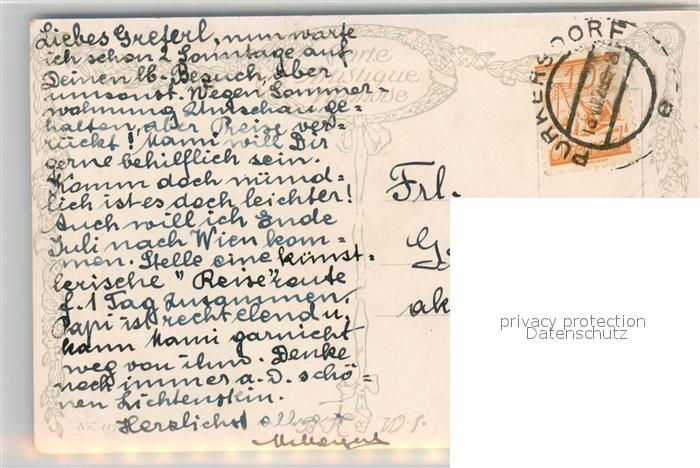 Liebes Greterl, nun warte
ich schon 2 Sonntage auf
Deinen lb. Besuch, aber
umsonst. Wegen Sommer=
wohnung Umschau ge=
halten, aber Preise ver=
rückt! Mami will Dir
gerne behilflich sein.
Komm doch münd=
lich ist es doch leichter!
Auch will ich Ende
Juli nach Wien kom=
men. Stelle eine künst=
lerische "Reise"route
f. 1 Tag zusammen.
Papi ist recht elend u.
kann Mami garnicht
weg von ihm. Denke
noch immer a. d. schö=
nen Lichtenstein.
Herzlichst
Carte
Artistique
Viennoise
PURKERSDORF
Frl.
No. 117
B.K.W.I.
privacy protection
Datenschutz